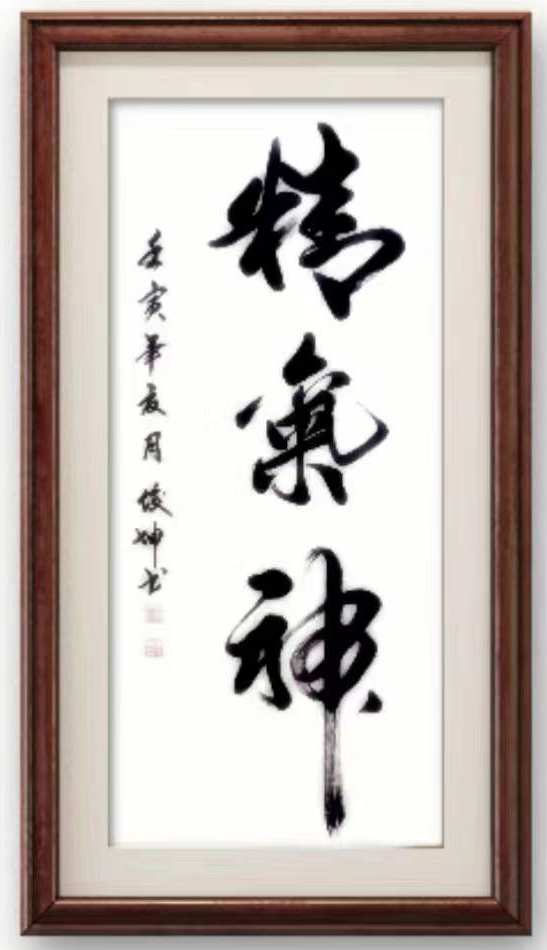 精氣神
壬寅年亥月俊坤书